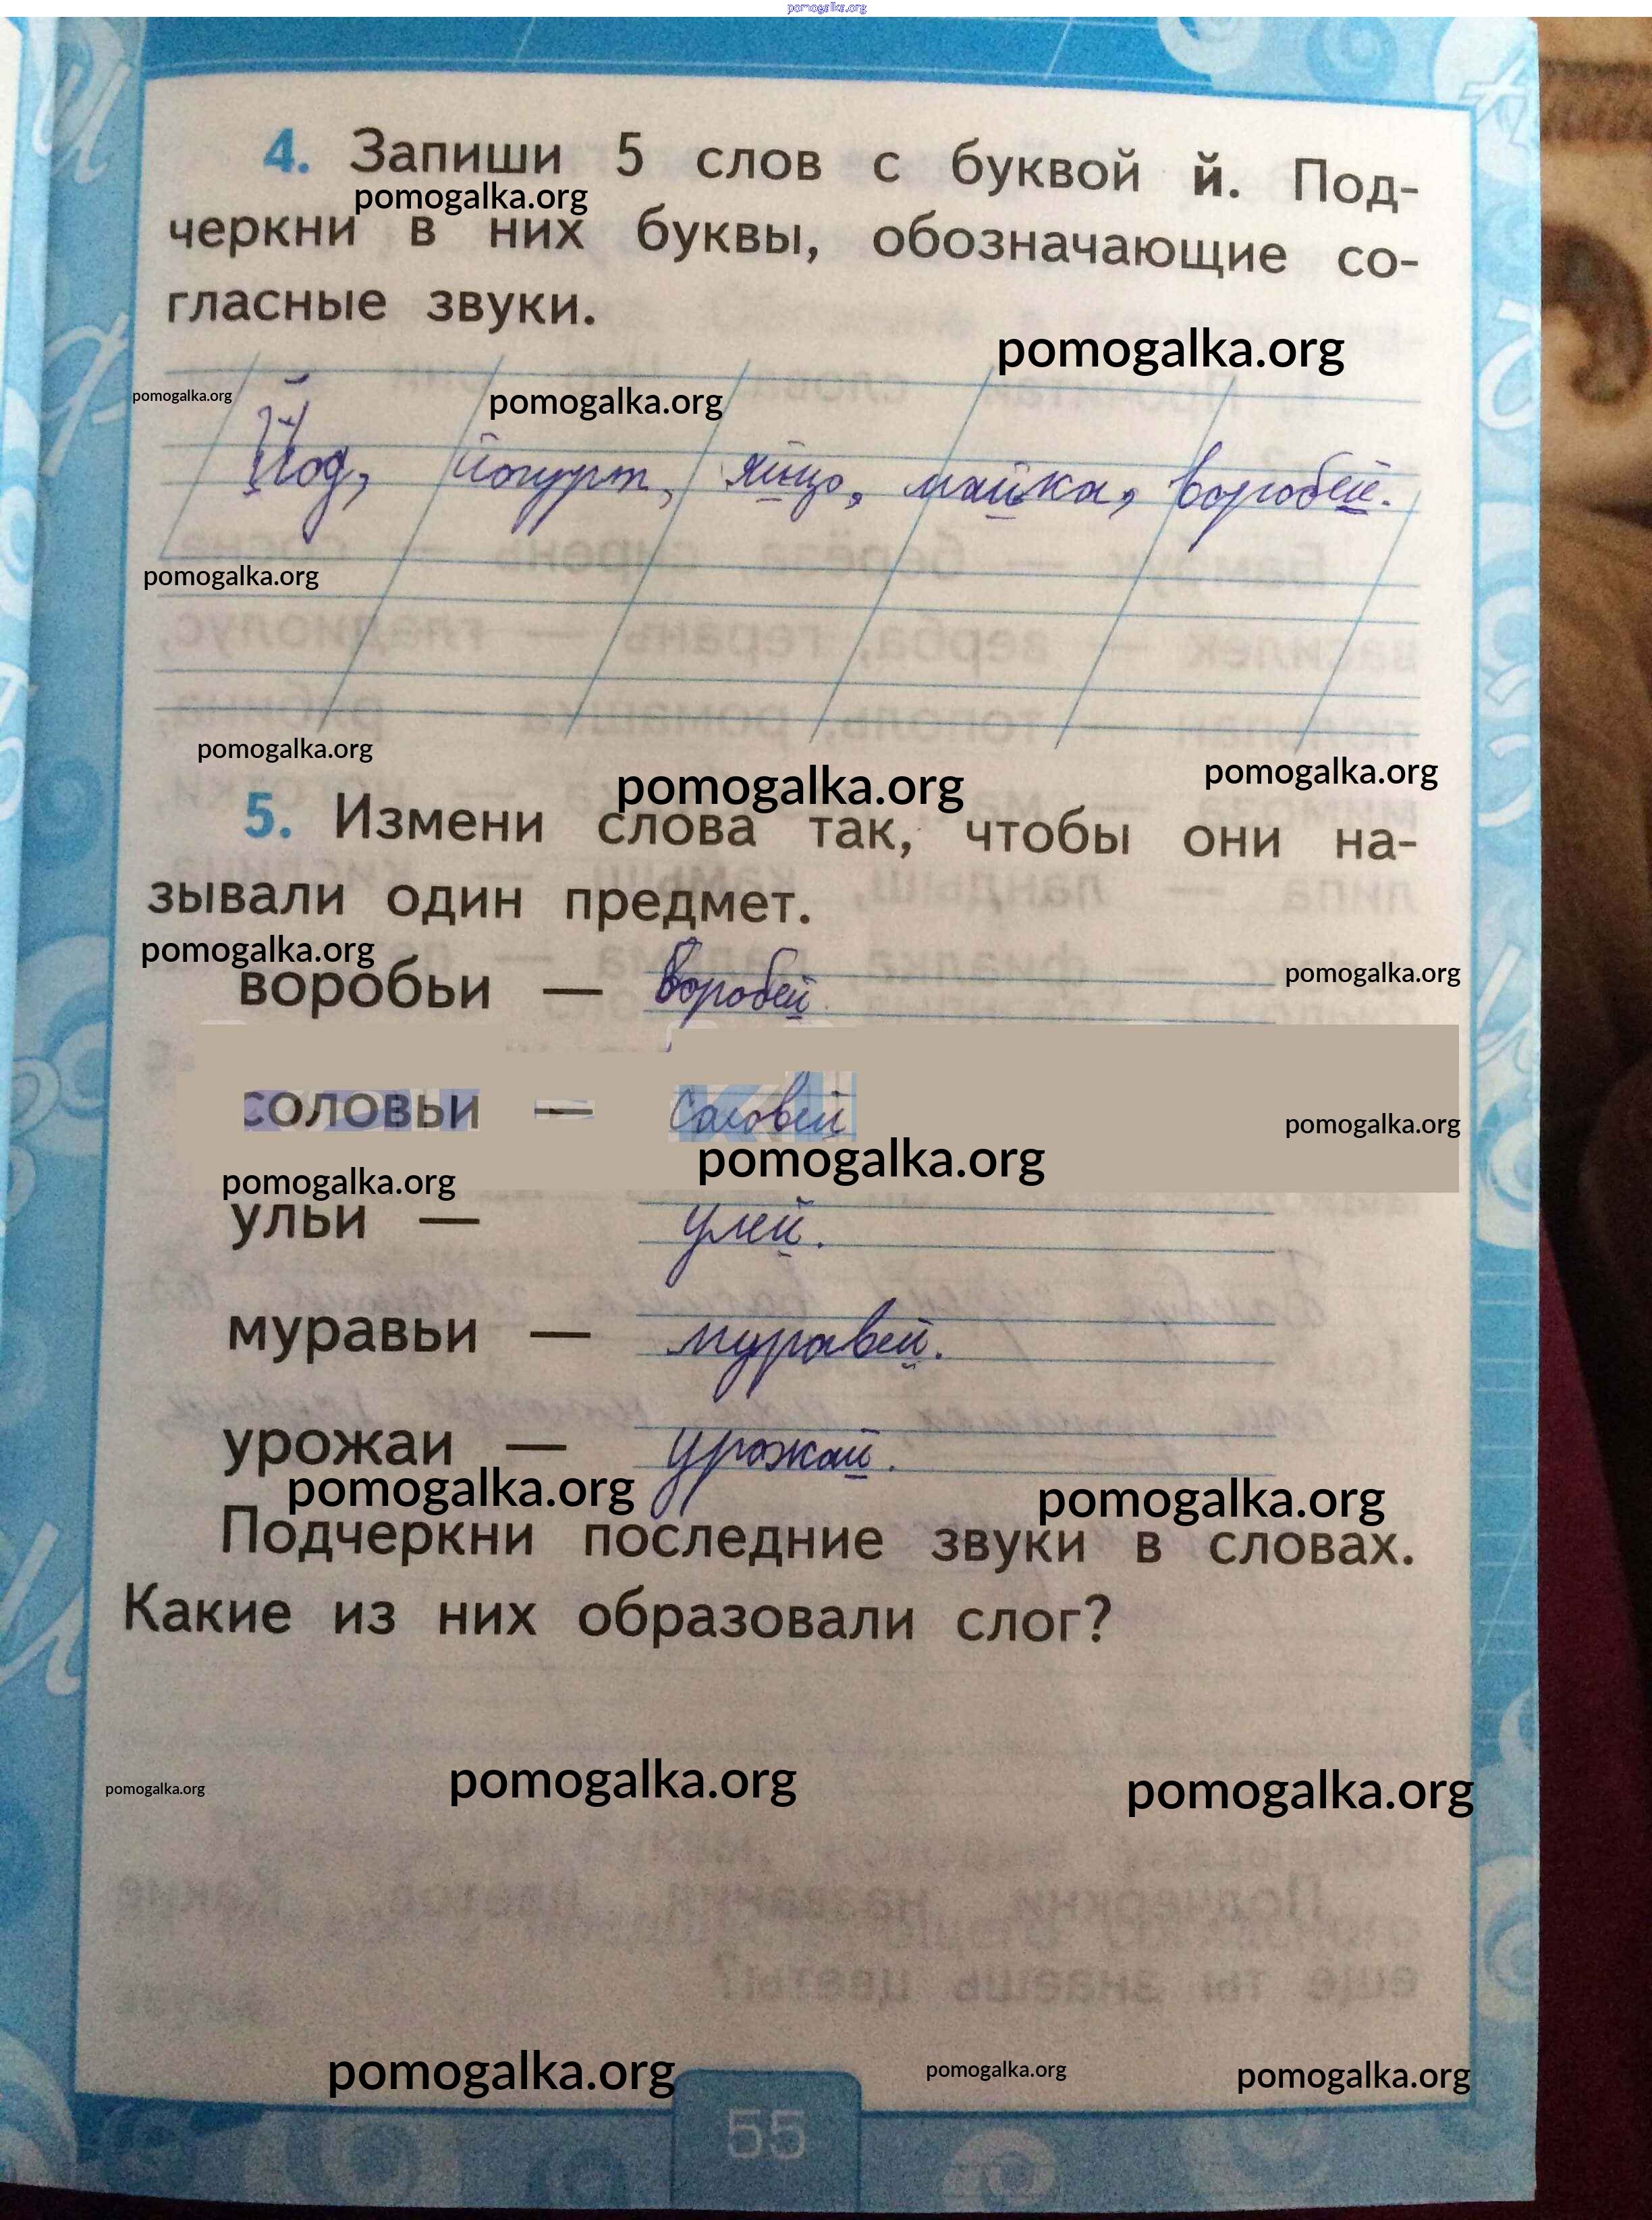 pomogalka.org
4. Запиши 5 слов с буквой й. Под-
pomogalka.org
черкни в них буквы, обозначающие со-
гласные звуки.
pomogalka.org
pomogalka.org pomogalka.org
Йод, йогурт, яйцо, майка, воробей.
pomogalka.org
pomogalka.org
pomogalka.org pomogalka.org
5. Измени слова так, чтобы они на-
зывали один предмет.
pomogalka.org pomogalka.org
воробьи — воробей
соловьи — соловей
pomogalka.org
pomogalka.org pomogalka.org
ульи — улей.
муравьи — муравей.
урожаи — урожай.
pomogalka.org pomogalka.org
Подчеркни последние звуки в словах.
Какие из них образовали слог?
pomogalka.org pomogalka.org pomogalka.org
pomogalka.org pomogalka.org pomogalka.org
55